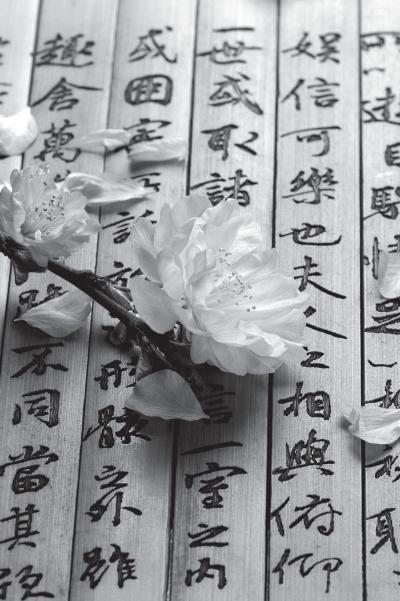 遊目騁
娛信可樂也夫人之相與俯仰
一世或取諸言一室之內
或因寄所託形骸之外雖
趣舍萬躁不同當其欣